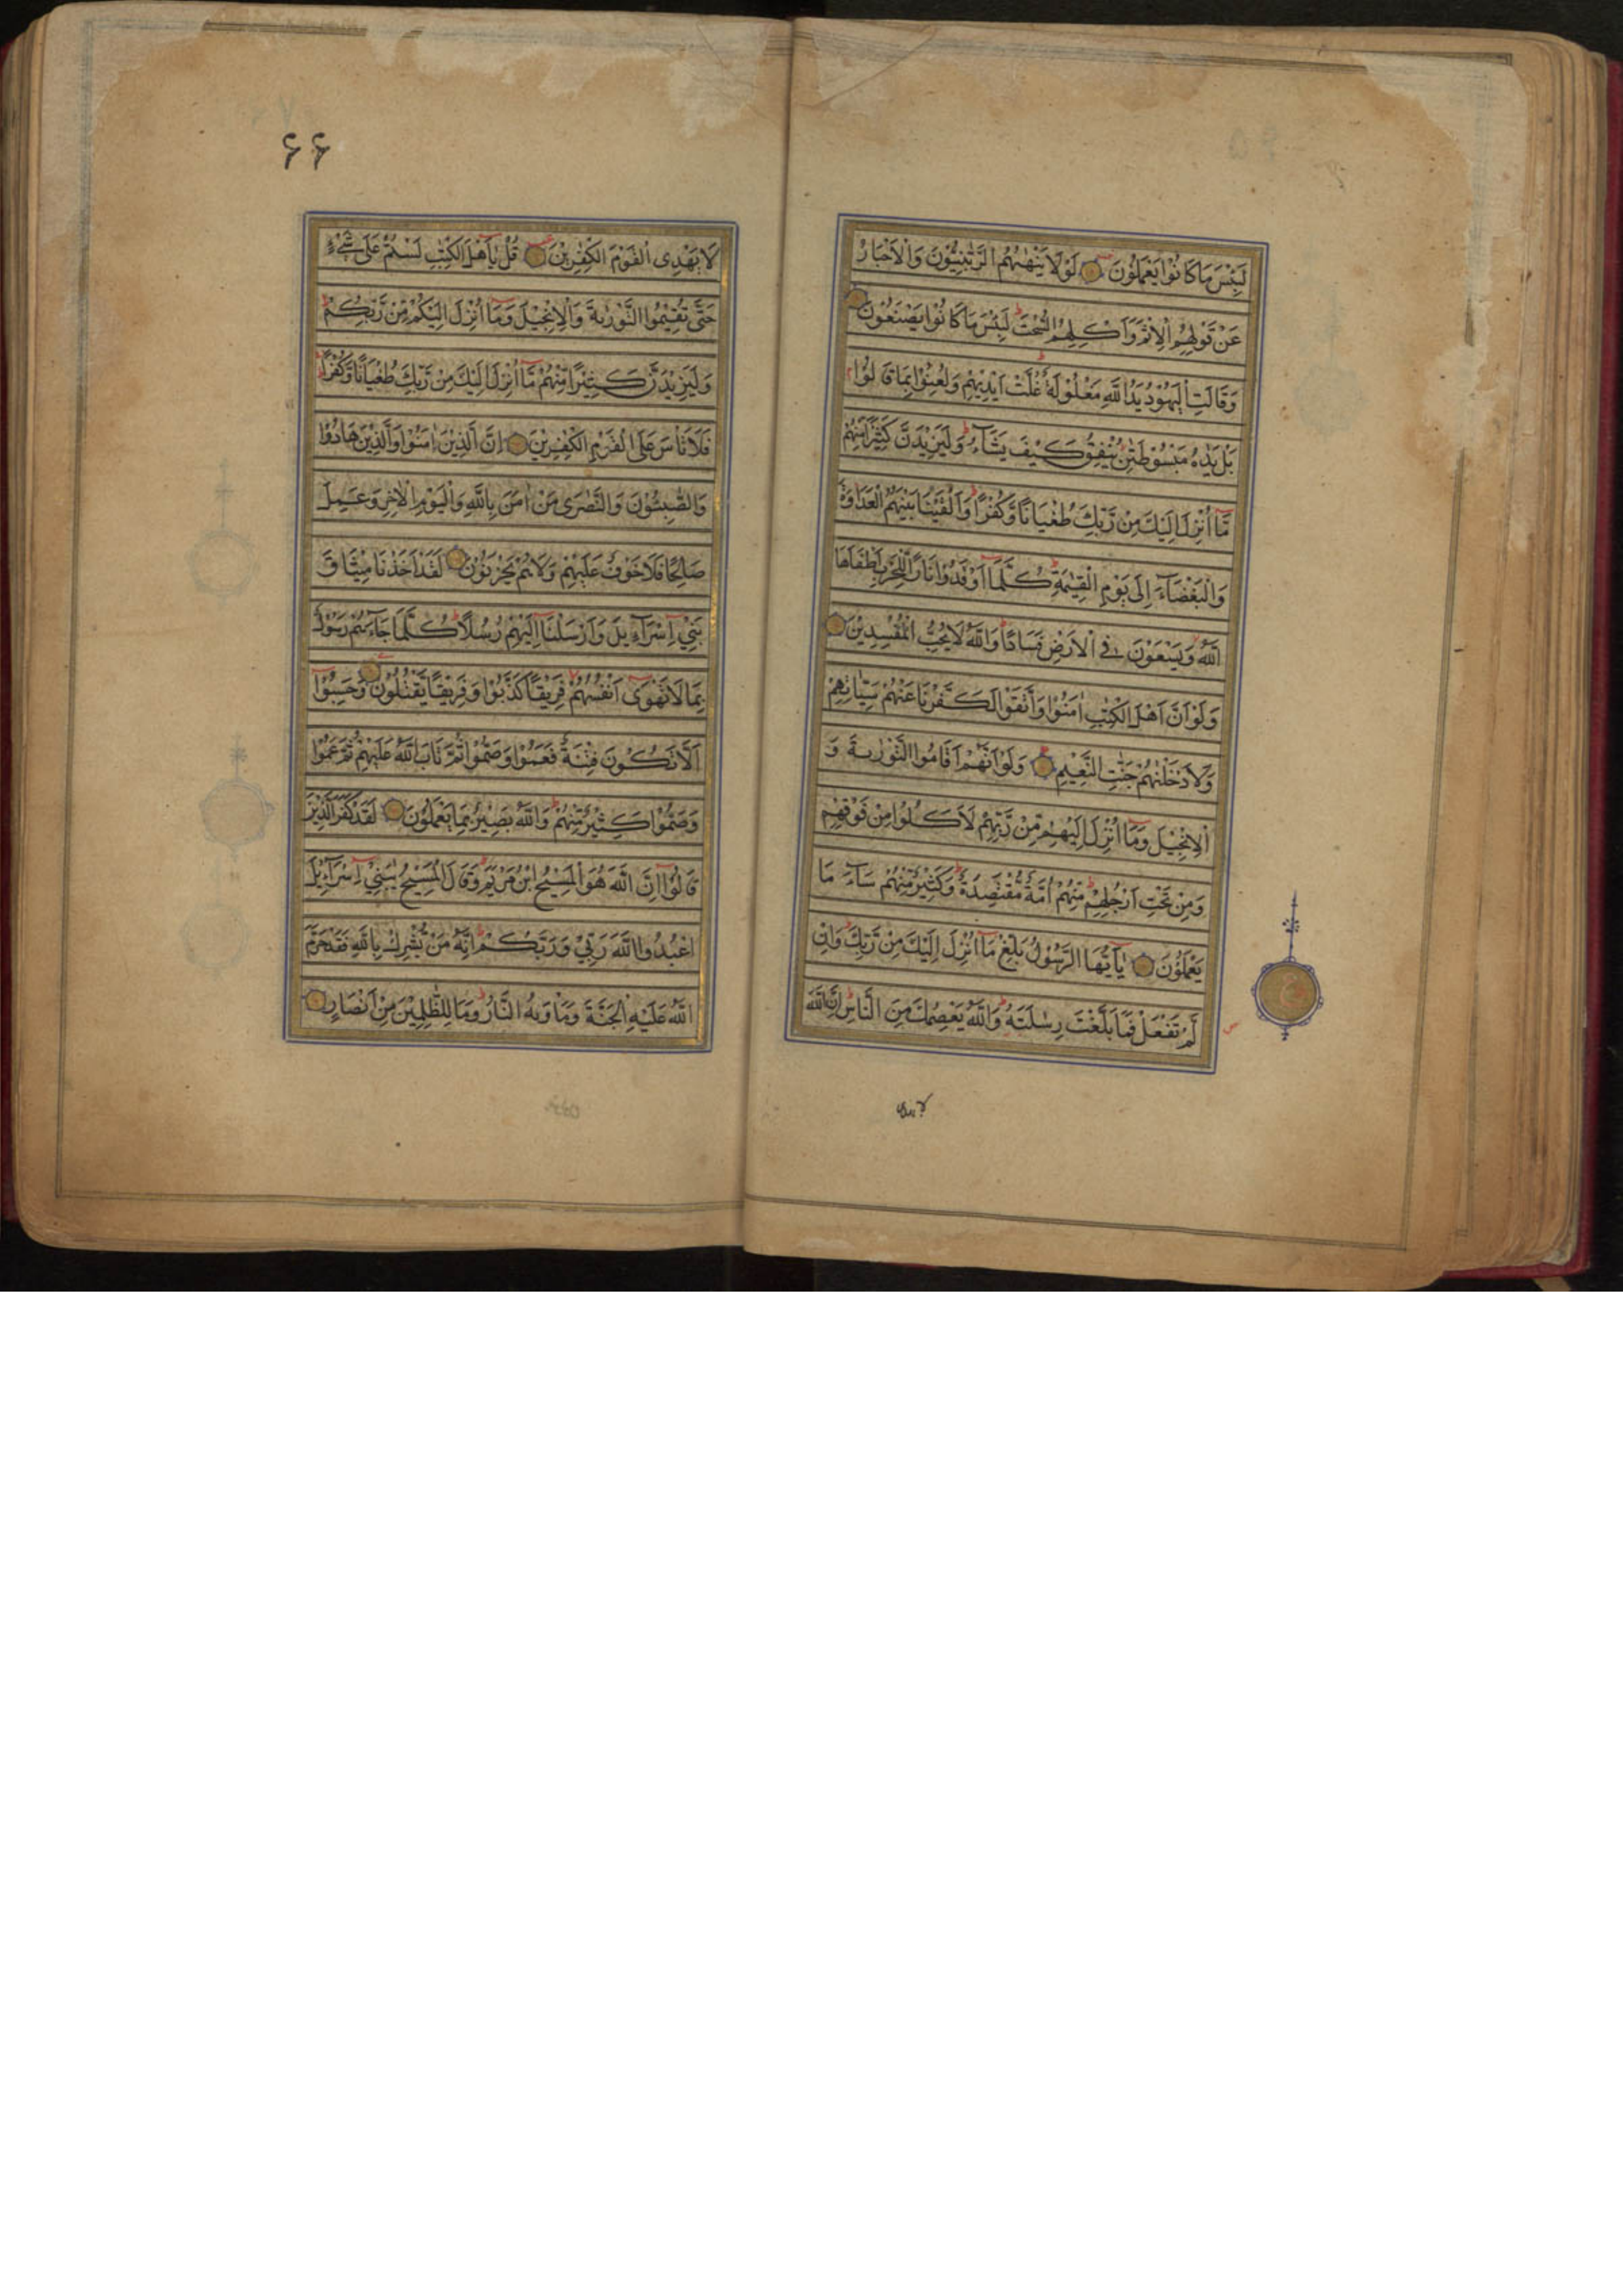 لَبِئْسَ مَا كَانُوْا يَعْمَلُوْنَ لَوْلَا يَنْهٰىهُمُ الرَّبّٰنِيُّوْنَ وَالْاَحْبَارُ
عَنْ قَوْلِهِمُ الْاِثْمَ وَاَكْلِهِمُ السُّحْتَ ط لَبِئْسَ مَا كَانُوْا يَصْنَعُوْنَ
وَقَالَتِ الْيَهُوْدُ يَدُ اللّٰهِ مَغْلُوْلَةٌ ط غُلَّتْ اَيْدِيْهِمْ وَلُعِنُوْا بِمَا قَالُوْا
بَلْ يَدٰهُ مَبْسُوْطَتٰنِ يُنْفِقُ كَيْفَ يَشَآءُ ط وَلَيَزِيْدَنَّ كَثِيْرًا مِّنْهُمْ
مَّا اُنْزِلَ اِلَيْكَ مِنْ رَّبِّكَ طُغْيَانًا وَّكُفْرًا ط وَاَلْقَيْنَا بَيْنَهُمُ الْعَدَاوَةَ
وَالْبَغْضَآءَ اِلٰى يَوْمِ الْقِيٰمَةِ ط كُلَّمَا اَوْقَدُوْا نَارًا لِّلْحَرْبِ اَطْفَاَهَا
اللّٰهُ وَيَسْعَوْنَ فِي الْاَرْضِ فَسَادًا ط وَاللّٰهُ لَا يُحِبُّ الْمُفْسِدِيْنَ
وَلَوْ اَنَّ اَهْلَ الْكِتٰبِ اٰمَنُوْا وَاتَّقَوْا لَكَفَّرْنَا عَنْهُمْ سَيِّاٰتِهِمْ
وَلَاَدْخَلْنٰهُمْ جَنّٰتِ النَّعِيْمِ وَلَوْ اَنَّهُمْ اَقَامُوا التَّوْرٰىةَ وَ
الْاِنْجِيْلَ وَمَا اُنْزِلَ اِلَيْهِمْ مِّنْ رَّبِّهِمْ لَاَكَلُوْا مِنْ فَوْقِهِمْ
وَمِنْ تَحْتِ اَرْجُلِهِمْ ط مِنْهُمْ اُمَّةٌ مُّقْتَصِدَةٌ ط وَكَثِيْرٌ مِّنْهُمْ سَآءَ مَا
يَعْمَلُوْنَ يٰاَيُّهَا الرَّسُوْلُ بَلِّغْ مَا اُنْزِلَ اِلَيْكَ مِنْ رَّبِّكَ ط وَاِنْ
لَّمْ تَفْعَلْ فَمَا بَلَّغْتَ رِسٰلَتَهُ ط وَاللّٰهُ يَعْصِمُكَ مِنَ النَّاسِ ط اِنَّ اللّٰهَ
ع
لا یهدی
۶۶
لَا يَهْدِى الْقَوْمَ الْكٰفِرِيْنَ قُلْ يٰاَهْلَ الْكِتٰبِ لَسْتُمْ عَلٰى شَيْءٍ
حَتّٰى تُقِيْمُوا التَّوْرٰىةَ وَالْاِنْجِيْلَ وَمَا اُنْزِلَ اِلَيْكُمْ مِّنْ رَّبِّكُمْ ط
وَلَيَزِيْدَنَّ كَثِيْرًا مِّنْهُمْ مَّا اُنْزِلَ اِلَيْكَ مِنْ رَّبِّكَ طُغْيَانًا وَّكُفْرًا
فَلَا تَاْسَ عَلَى الْقَوْمِ الْكٰفِرِيْنَ اِنَّ الَّذِيْنَ اٰمَنُوْا وَالَّذِيْنَ هَادُوْا
وَالصّٰبِئُوْنَ وَالنَّصٰرٰى مَنْ اٰمَنَ بِاللّٰهِ وَالْيَوْمِ الْاٰخِرِ وَعَمِلَ
صَالِحًا فَلَا خَوْفٌ عَلَيْهِمْ وَلَا هُمْ يَحْزَنُوْنَ لَقَدْ اَخَذْنَا مِيْثَاقَ
بَنِيْ اِسْرَآءِيْلَ وَاَرْسَلْنَا اِلَيْهِمْ رُسُلًا ط كُلَّمَا جَآءَهُمْ رَسُوْلٌ
بِمَا لَا تَهْوٰى اَنْفُسُهُمْ فَرِيْقًا كَذَّبُوْا وَفَرِيْقًا يَّقْتُلُوْنَ وَحَسِبُوْا
اَلَّا تَكُوْنَ فِتْنَةٌ فَعَمُوْا وَصَمُّوْا ثُمَّ تَابَ اللّٰهُ عَلَيْهِمْ ثُمَّ عَمُوْا
وَصَمُّوْا كَثِيْرٌ مِّنْهُمْ ط وَاللّٰهُ بَصِيْرٌ بِمَا يَعْمَلُوْنَ لَقَدْ كَفَرَ الَّذِيْنَ
قَالُوْا اِنَّ اللّٰهَ هُوَ الْمَسِيْحُ ابْنُ مَرْيَمَ ط وَقَالَ الْمَسِيْحُ يٰبَنِيْ اِسْرَآءِيْلَ
اعْبُدُوا اللّٰهَ رَبِّيْ وَرَبَّكُمْ ط اِنَّهُ مَنْ يُّشْرِكْ بِاللّٰهِ فَقَدْ حَرَّمَ
اللّٰهُ عَلَيْهِ الْجَنَّةَ وَمَاْوٰىهُ النَّارُ ط وَمَا لِلظّٰلِمِيْنَ مِنْ اَنْصَارٍ